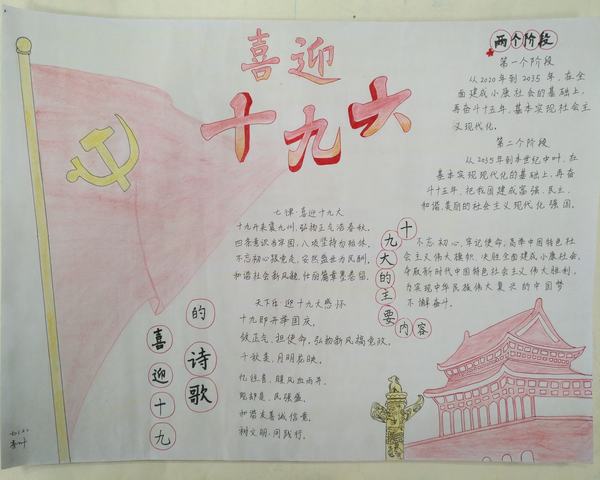 喜迎
十九大
两个阶段
第一个阶段
从2020年到2035年,在全
面建成小康社会的基础上,
再奋斗十五年,基本实现社会主
义现代化。
第二个阶段
从2035年到本世纪中叶,在
基本实现现代化的基础上,再奋
斗十五年,把我国建成富强、民主、
和谐、美丽的社会主义现代化强国。
七律·喜迎十九大
十九开来襄九州,弘扬正气浩春秋。
四条意识书宇固,八项坚持为祖休。
和谐社会新风貌,
天下乐·迎十九大感怀
十九即开举国庆。
效正气,担使命,弘扬新风搞党政。
千秋芙,月明花映。
忆往昔,腥风血雨开。
现却是,民强盛。
和谐友善诚信意。
树文明,同践行。
十九大的主要内容
不忘初心,牢记使命,高举中国特色社
会主义伟大旗帜,决胜全面建成小康社会,
夺取新时代中国特色社会主义伟大胜利,
为实现中华民族伟大复兴的中国梦
不懈奋斗。
喜迎十九
的诗歌